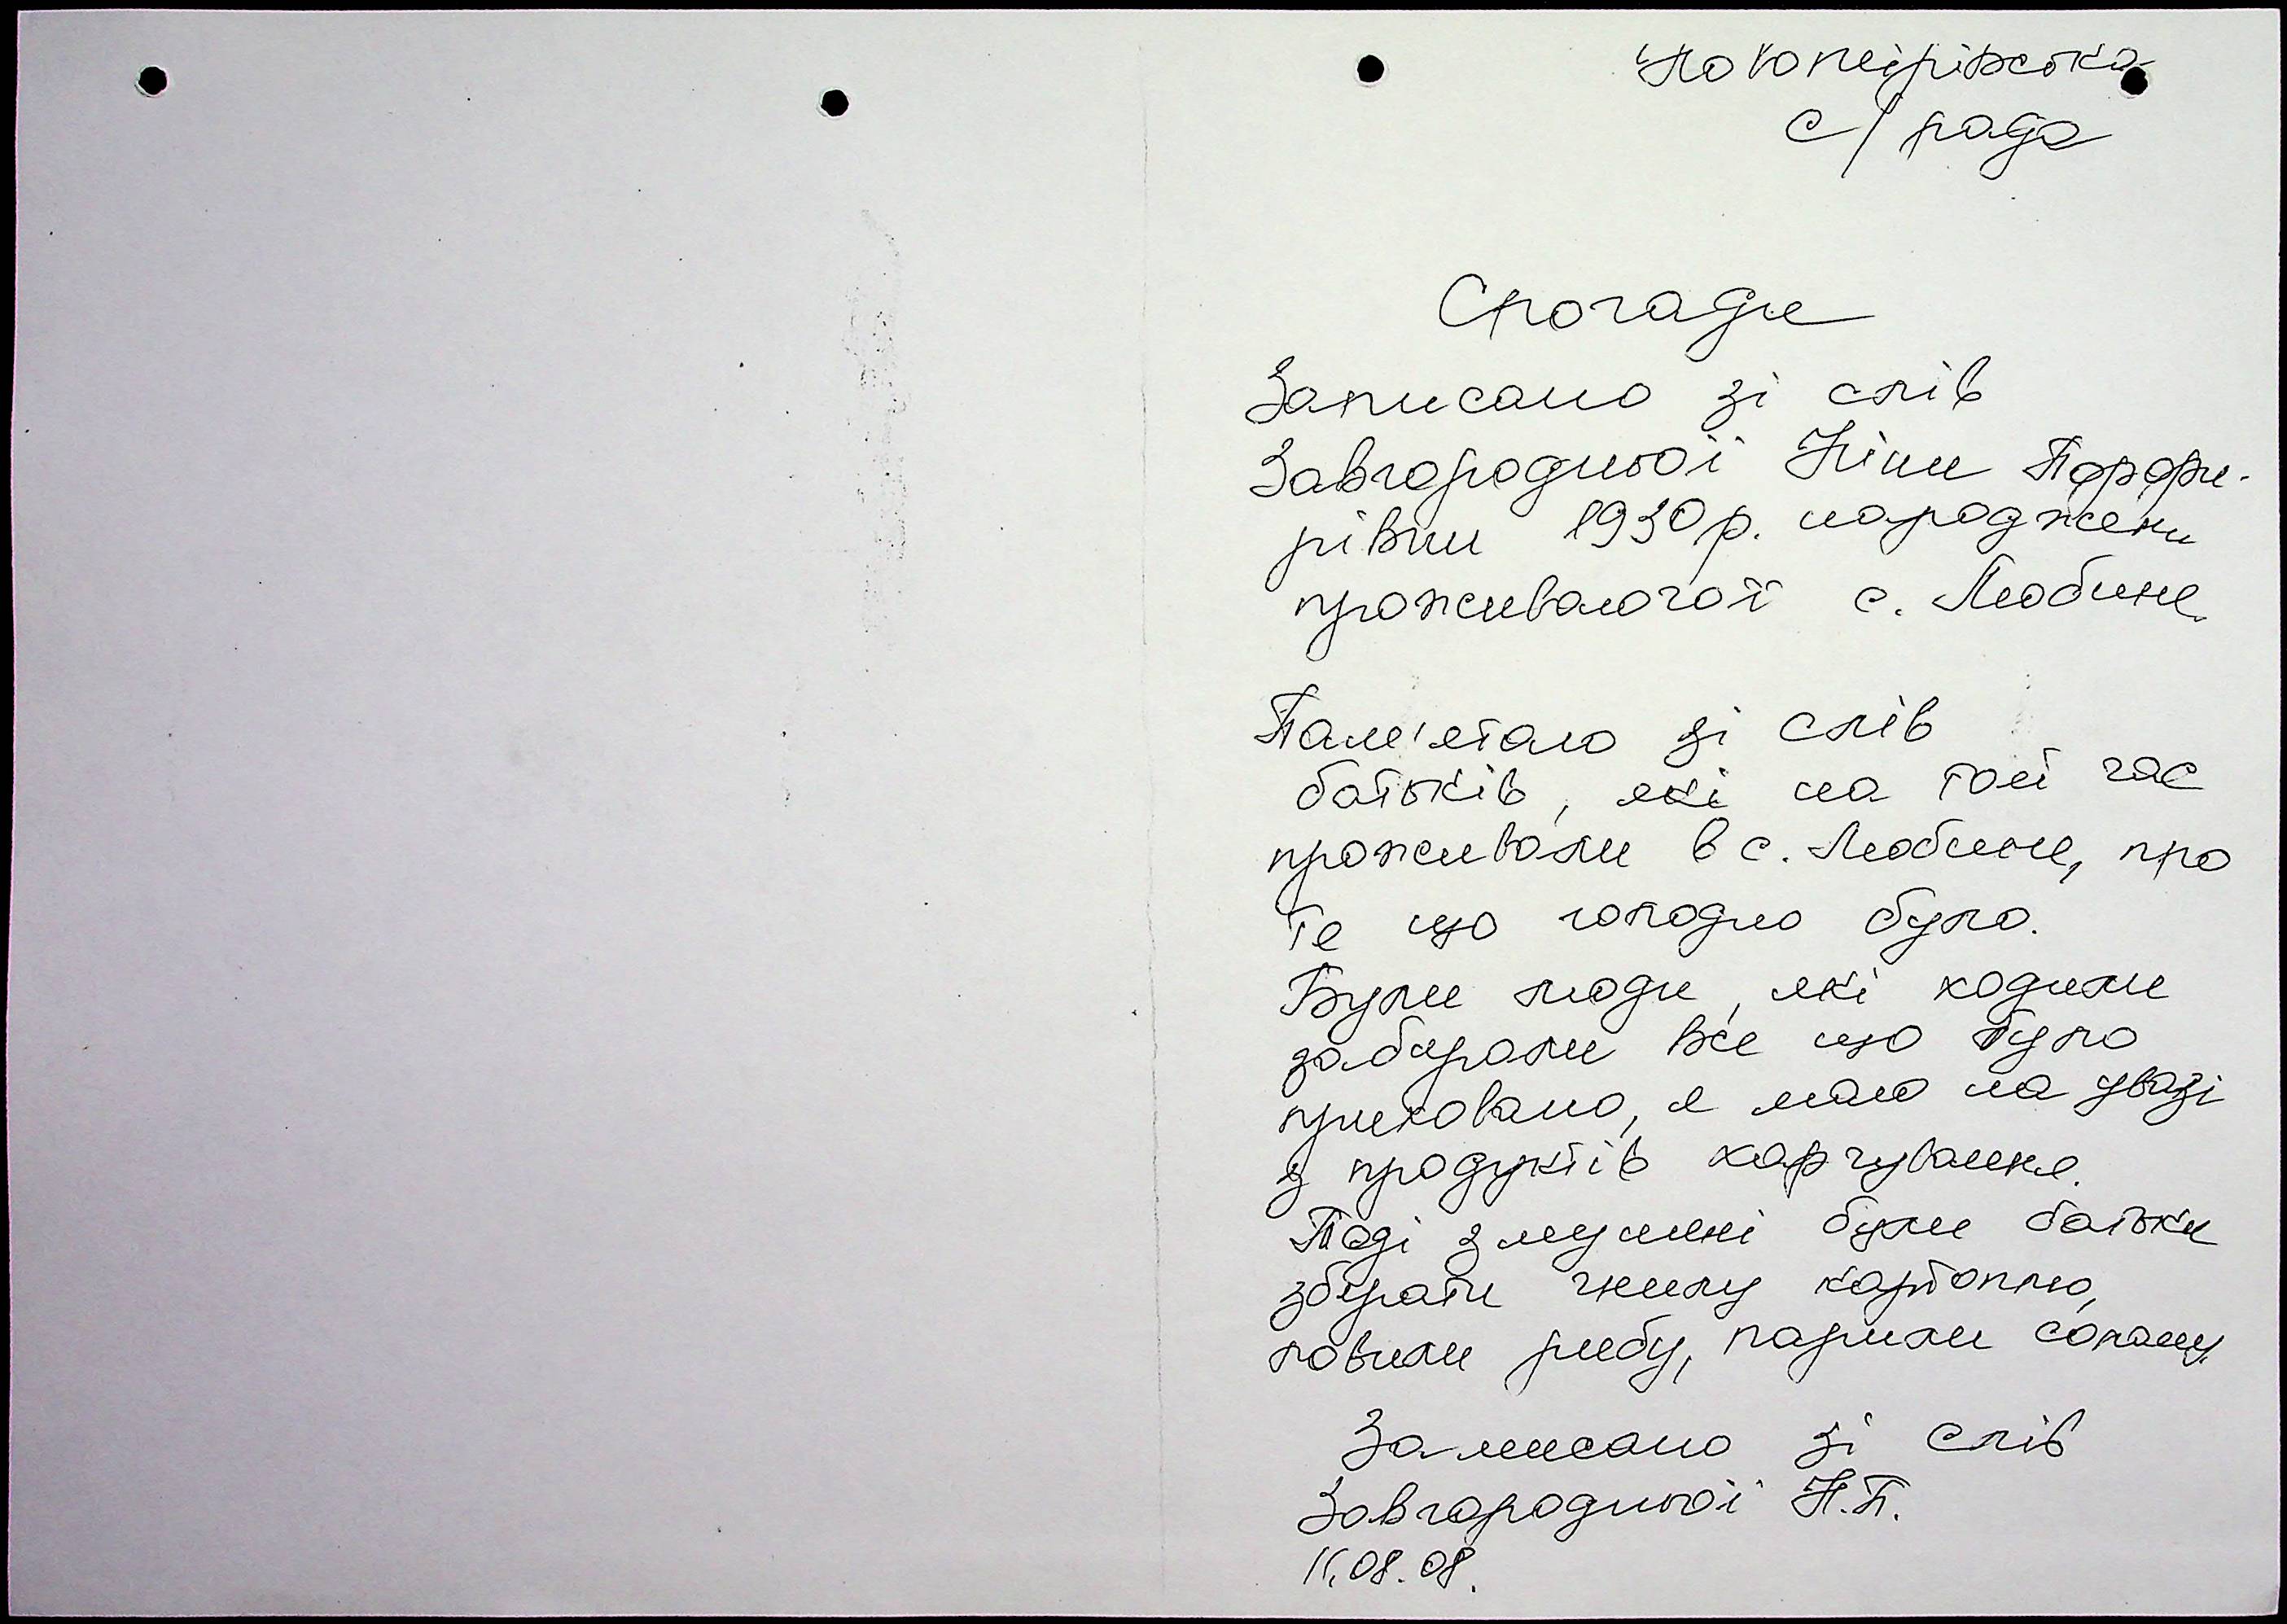 Новопетрівська
с/рада
Спогади
Записано зі слів
Завгородньої Ніни Порфи-
рівни 1930 р. народжени
проживаючої с. Любине
Пам'ятаю зі слів
батьків, які на той час
проживали в с. Любине, про
те що голодно було.
Були люди, які ходили
забирали все що було
приховано, я маю на увазі
з продуктів харчування.
Тоді змушені були батьки
збирати гнилу картоплю,
ловили рибу, парили солому
Записано зі слів
Завгородньої Н.П.
11.08.08.